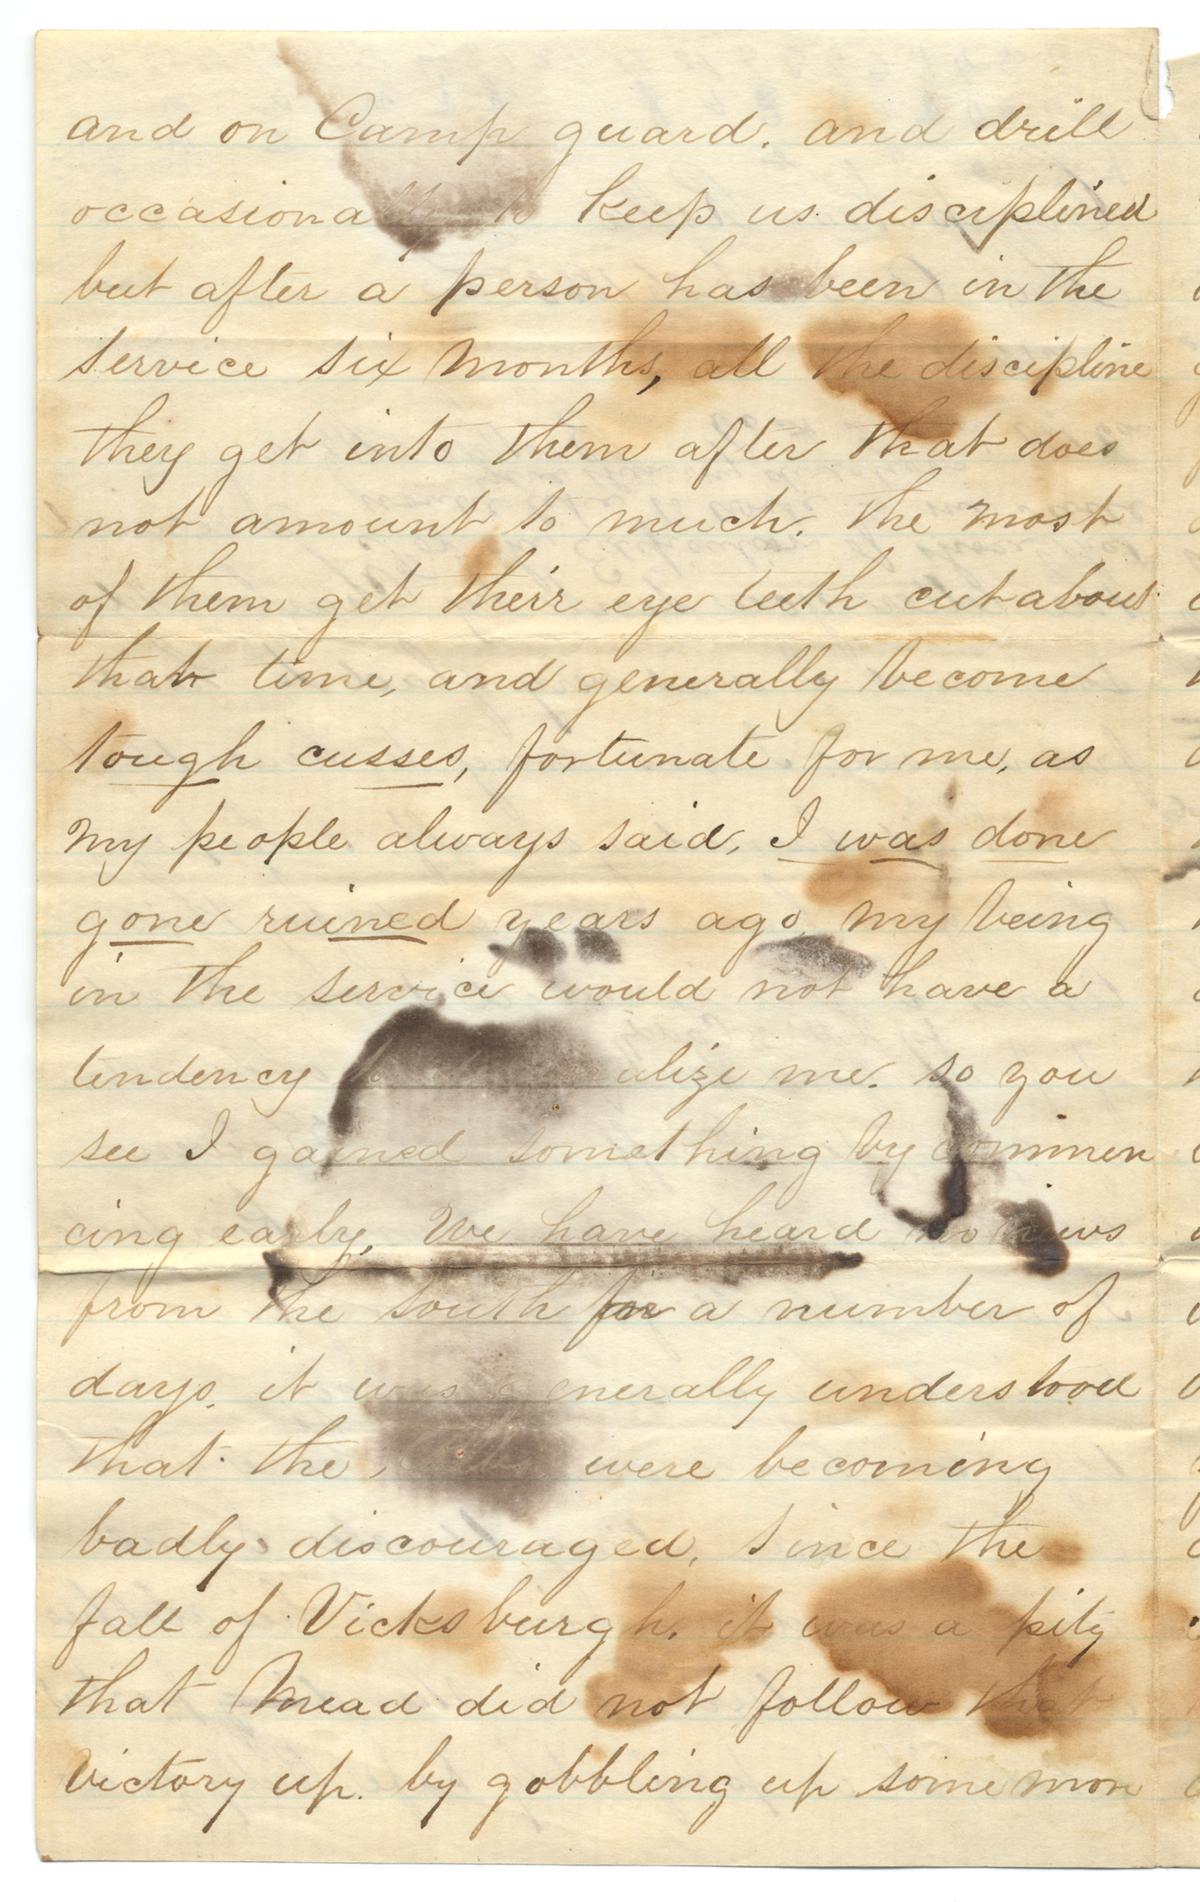 and on Camp guard. and drill
occasionally to keep us disciplined
but after a person has been in the
service six months, all the discipline
they get into them after that does
not amount to much. the most
of them get their eye teeth cut about
that time, and generally become
tough cusses, fortunate for me, as
my people always said, I was done
gone ruined years ago, my being
in the service would not have a
tendency alize me. so you
see I gained something by commen
cing early. We have heard no news
from the South for a number of
days. it was generally understood
that the were becoming
badly discouraged, since the
fall of Vicksburgh. it was a pity
that Mead did not follow that
victory up. by gobbling up some more